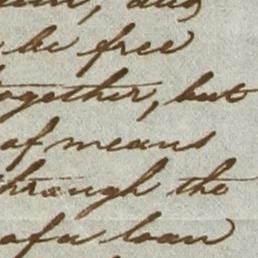 be free
together, but
of means
through the
of a loan